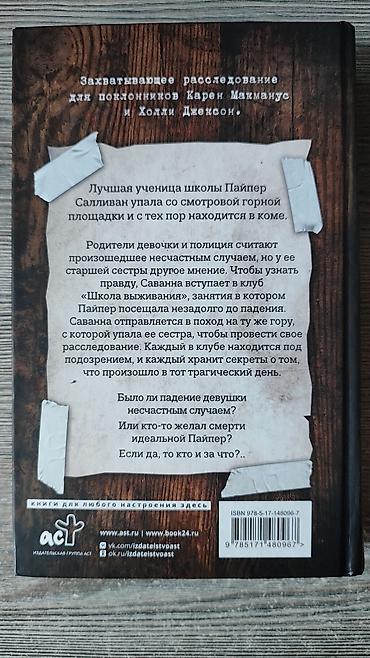 Захватывающее расследование
для поклонников Карен Макманус
и Холли Джексон.
Лучшая ученица школы Пайпер
Салливан упала со смотровой горной
площадки и с тех пор находится в коме.
Родители девочки и полиция считают
произошедшее несчастным случаем, но у ее
старшей сестры другое мнение. Чтобы узнать
правду, Саванна вступает в клуб
«Школа выживания», занятия в котором
Пайпер посещала незадолго до падения.
Саванна отправляется в поход на ту же гору,
с которой упала ее сестра, чтобы провести свое
расследование. Каждый в клубе находится под
подозрением, и каждый хранит секреты о том,
что произошло в тот трагический день.
Было ли падение девушки
несчастным случаем?
Или кто-то желал смерти
идеальной Пайпер?
Если да, то кто и за что?..
книги для любого настроения здесь
аст
ИЗДАТЕЛЬСКАЯ ГРУППА АСТ
www.ast.ru | www.book24.ru
vk.com/izdatelstvoast
ok.ru/izdatelstvoast
ISBN 978-5-17-148096-7
9 785171 480967 >